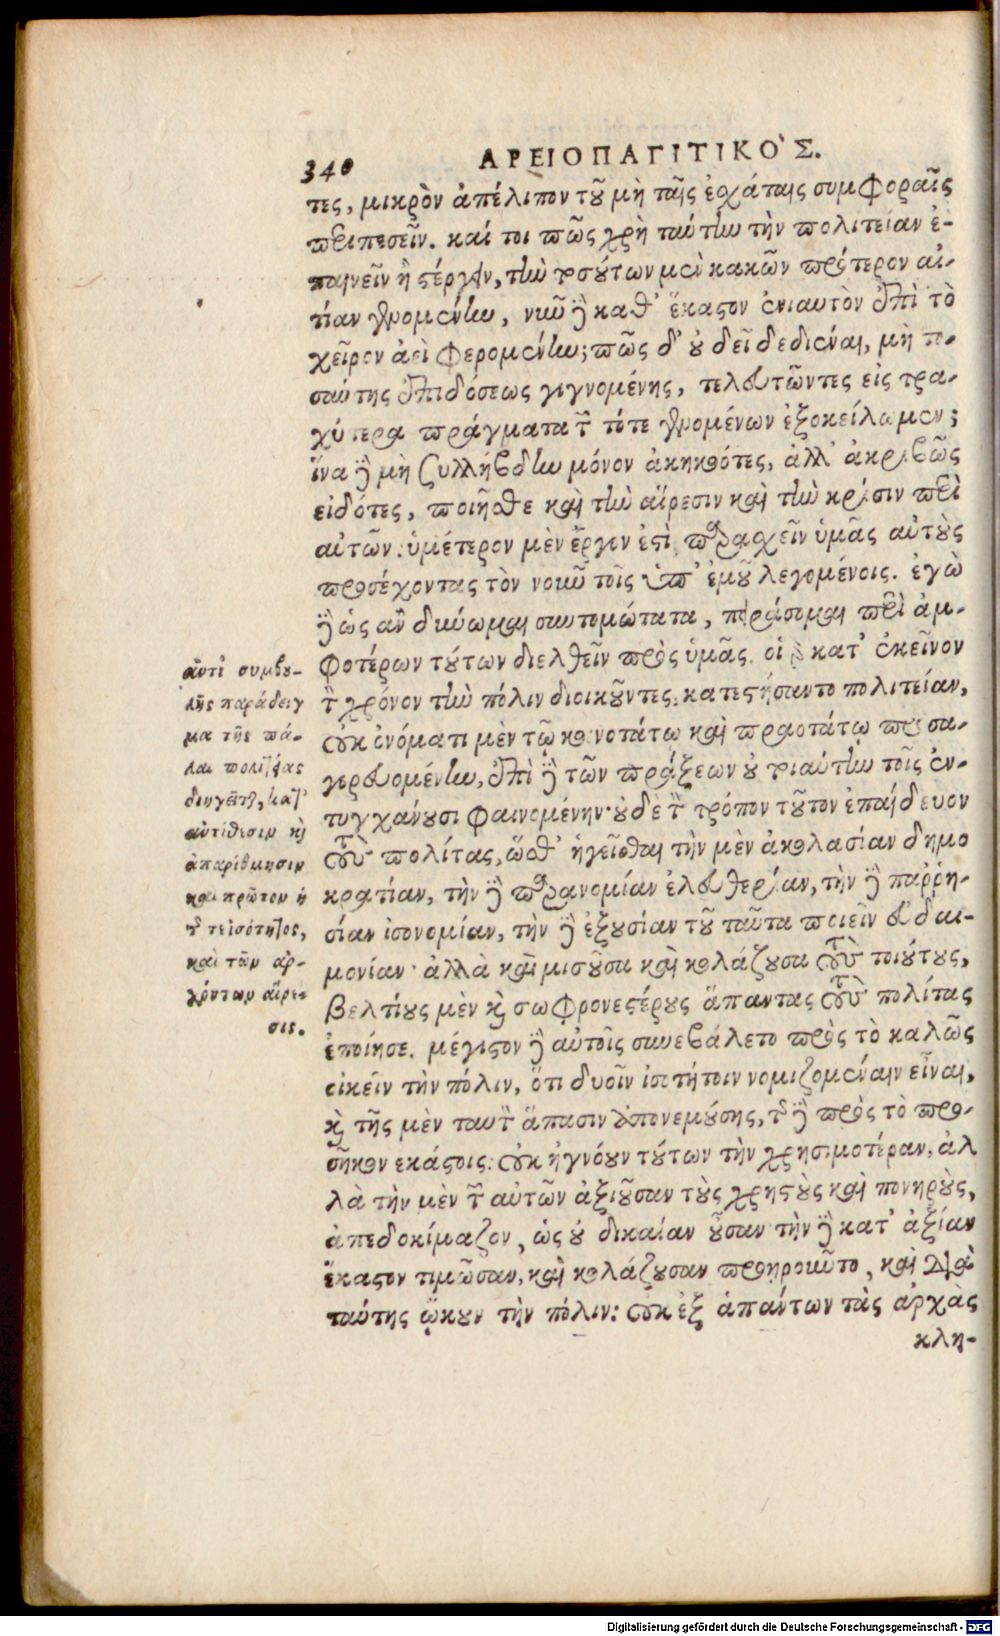 340 ΑΡΕΙΟΠΑΓΙΤΙΚΟ`Σ.
τες, μικρὸν ἀπέλιπον τοῦ μὴ ταῖς ἐσχάταις συμφοραῖς
περιπεσεῖν. καί τοι πῶς χρὴ ταύτην τὴν πολιτείαν ἐ-
παινεῖν ἢ στέργειν, τὴν τοσούτων μὲν κακῶν πρότερον αἰ-
τίαν γενομένην, νῦν δὲ καθ' ἕκαστον ἐνιαυτὸν ἐπὶ τὸ
χεῖρον ἀεὶ φερομένην; πῶς δ' οὐ δεῖ δεδιέναι, μὴ το-
σαύτης ἐπιδόσεως γιγνομένης, τελευτῶντες εἰς τρα-
χύτερα πράγματα τῶν τότε γενομένων ἐξοκείλωμεν;
ἵνα δὲ μὴ συλλήβδην μόνον ἀκηκοότες, ἀλλ' ἀκριβῶς
εἰδότες, ποιῆσθε καὶ τὴν αἵρεσιν καὶ τὴν κρίσιν περὶ
αὐτῶν: ὑμέτερον μὲν ἔργον ἐστὶ παρασχεῖν ὑμᾶς αὐτοὺς
προσέχοντας τὸν νοῦν τοῖς ὑπ' ἐμοῦ λεγομένοις. ἐγὼ
δὲ ὡς ἂν δύνωμαι συντομώτατα, πειράσομαι περὶ ἀμ-
φοτέρων τούτων διελθεῖν πρὸς ὑμᾶς. οἱ γὰρ κατ' ἐκεῖνον
τὸν χρόνον τὴν πόλιν διοικοῦντες, κατεστήσαντο πολιτείαν,
οὐκ ὀνόματι μὲν τῷ κοινοτάτῳ καὶ πραοτάτῳ προσα-
γορευομένην, ἐπὶ δὲ τῶν πράξεων οὐ τοιαύτην τοῖς ἐν-
τυγχάνουσι φαινομένην· οὐδὲ τὸν τρόπον τοῦτον ἐπαίδευον
τοὺς πολίτας, ὥσθ' ἡγεῖσθαι τὴν μὲν ἀκολασίαν δημο
κρατίαν, τὴν δὲ παρανομίαν ἐλευθερίαν, τὴν δὲ παῤῥη-
σίαν ἰσονομίαν, τὴν δὲ ἐξουσίαν τοῦ ταῦτα ποιεῖν εὐδαι-
μονίαν· ἀλλὰ καὶ μισοῦσα καὶ κολάζουσα τοὺς τοιούτους,
βελτίους μὲν καὶ σωφρονεστέρους ἅπαντας τοὺς πολίτας
ἐποίησε. μέγιστον δὲ αὐτοῖς συνεβάλετο πρὸς τὸ καλῶς
οἰκεῖν τὴν πόλιν, ὅτι δυοῖν ἰσοτήτοιν νομιζομέναιν εἶναι,
καὶ τῆς μὲν ταυτὸν ἅπασιν ἀπονεμούσης, τῆς δὲ πρὸς τὸ προ-
σῆκον εκάστοις: οὐκ ἠγνόουν τούτων τὴν χρησιμοτέραν, ἀλ
λὰ τὴν μὲν τῶν αὐτῶν ἀξιοῦσαν τοὺς χρηστοὺς καὶ πονηροὺς,
ἀπεδοκίμαζον, ὡς οὐ δικαίαν οὖσαν τὴν δὲ κατ' ἀξίαν
ἕκαστον τιμῶσαν, καὶ κολάζουσαν προῃροῦντο, καὶ διὰ
ταύτης ᾤκουν τὴν πόλιν: οὐκ ἐξ ἁπάντων τὰς ἀρχὰς
κλη-
ἀντὶ συμβου-
λῆς παράδειγ
μα τῆς πά-
λαι πολιτείας
διηγεῖται, κατ'
ἀντίθεσιν καὶ
ἀπαρίθμησιν
καὶ πρῶτον
ἰσότητος,
καὶ τῶν ἀρ-
χόντων αἵρε-
σις.
Digitalisierung gefördert durch die Deutsche Forschungsgemeinschaft - DFG